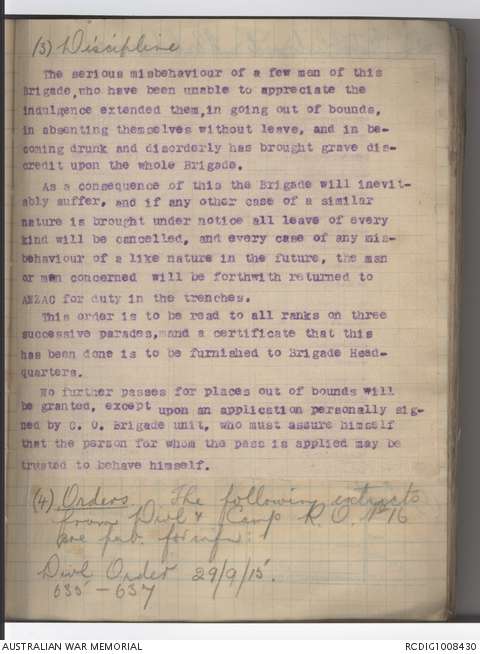 (3) Discipline
The serious misbehaviour of a few men of this
Brigade, who have been unable to appreciate the
indulgence extended them, in going out of bounds,
in absenting themselves without leave, and in be-
coming drunk and disorderly has brought grave dis-
credit upon the whole Brigade.
As a consequence of this the Brigade will inevit-
ably suffer, and if any other case of a similar
nature is brought under notice all leave of every
kind will be cancelled, and every case of any mis-
behaviour of a like nature in the future, the man
or men concerned will be forthwith returned to
ANZAC for duty in the trenches.
This order is to be read to all ranks on three
successive parades, and a certificate that this
has been done is to be furnished to Brigade Head-
quarters.
No further passes for places out of bounds will
be granted, except upon an application personally sig-
ned by C. O. Brigade unit, who must assure himself
that the person for whom the pass is applied may be
trusted to behave himself.
(4) Orders The following extracts
from Divl & Camp R. O. No 16
are pub. for infn :
Divl Order 29/9/15.
635 - 637
AUSTRALIAN WAR MEMORIAL
RCDIG1008430